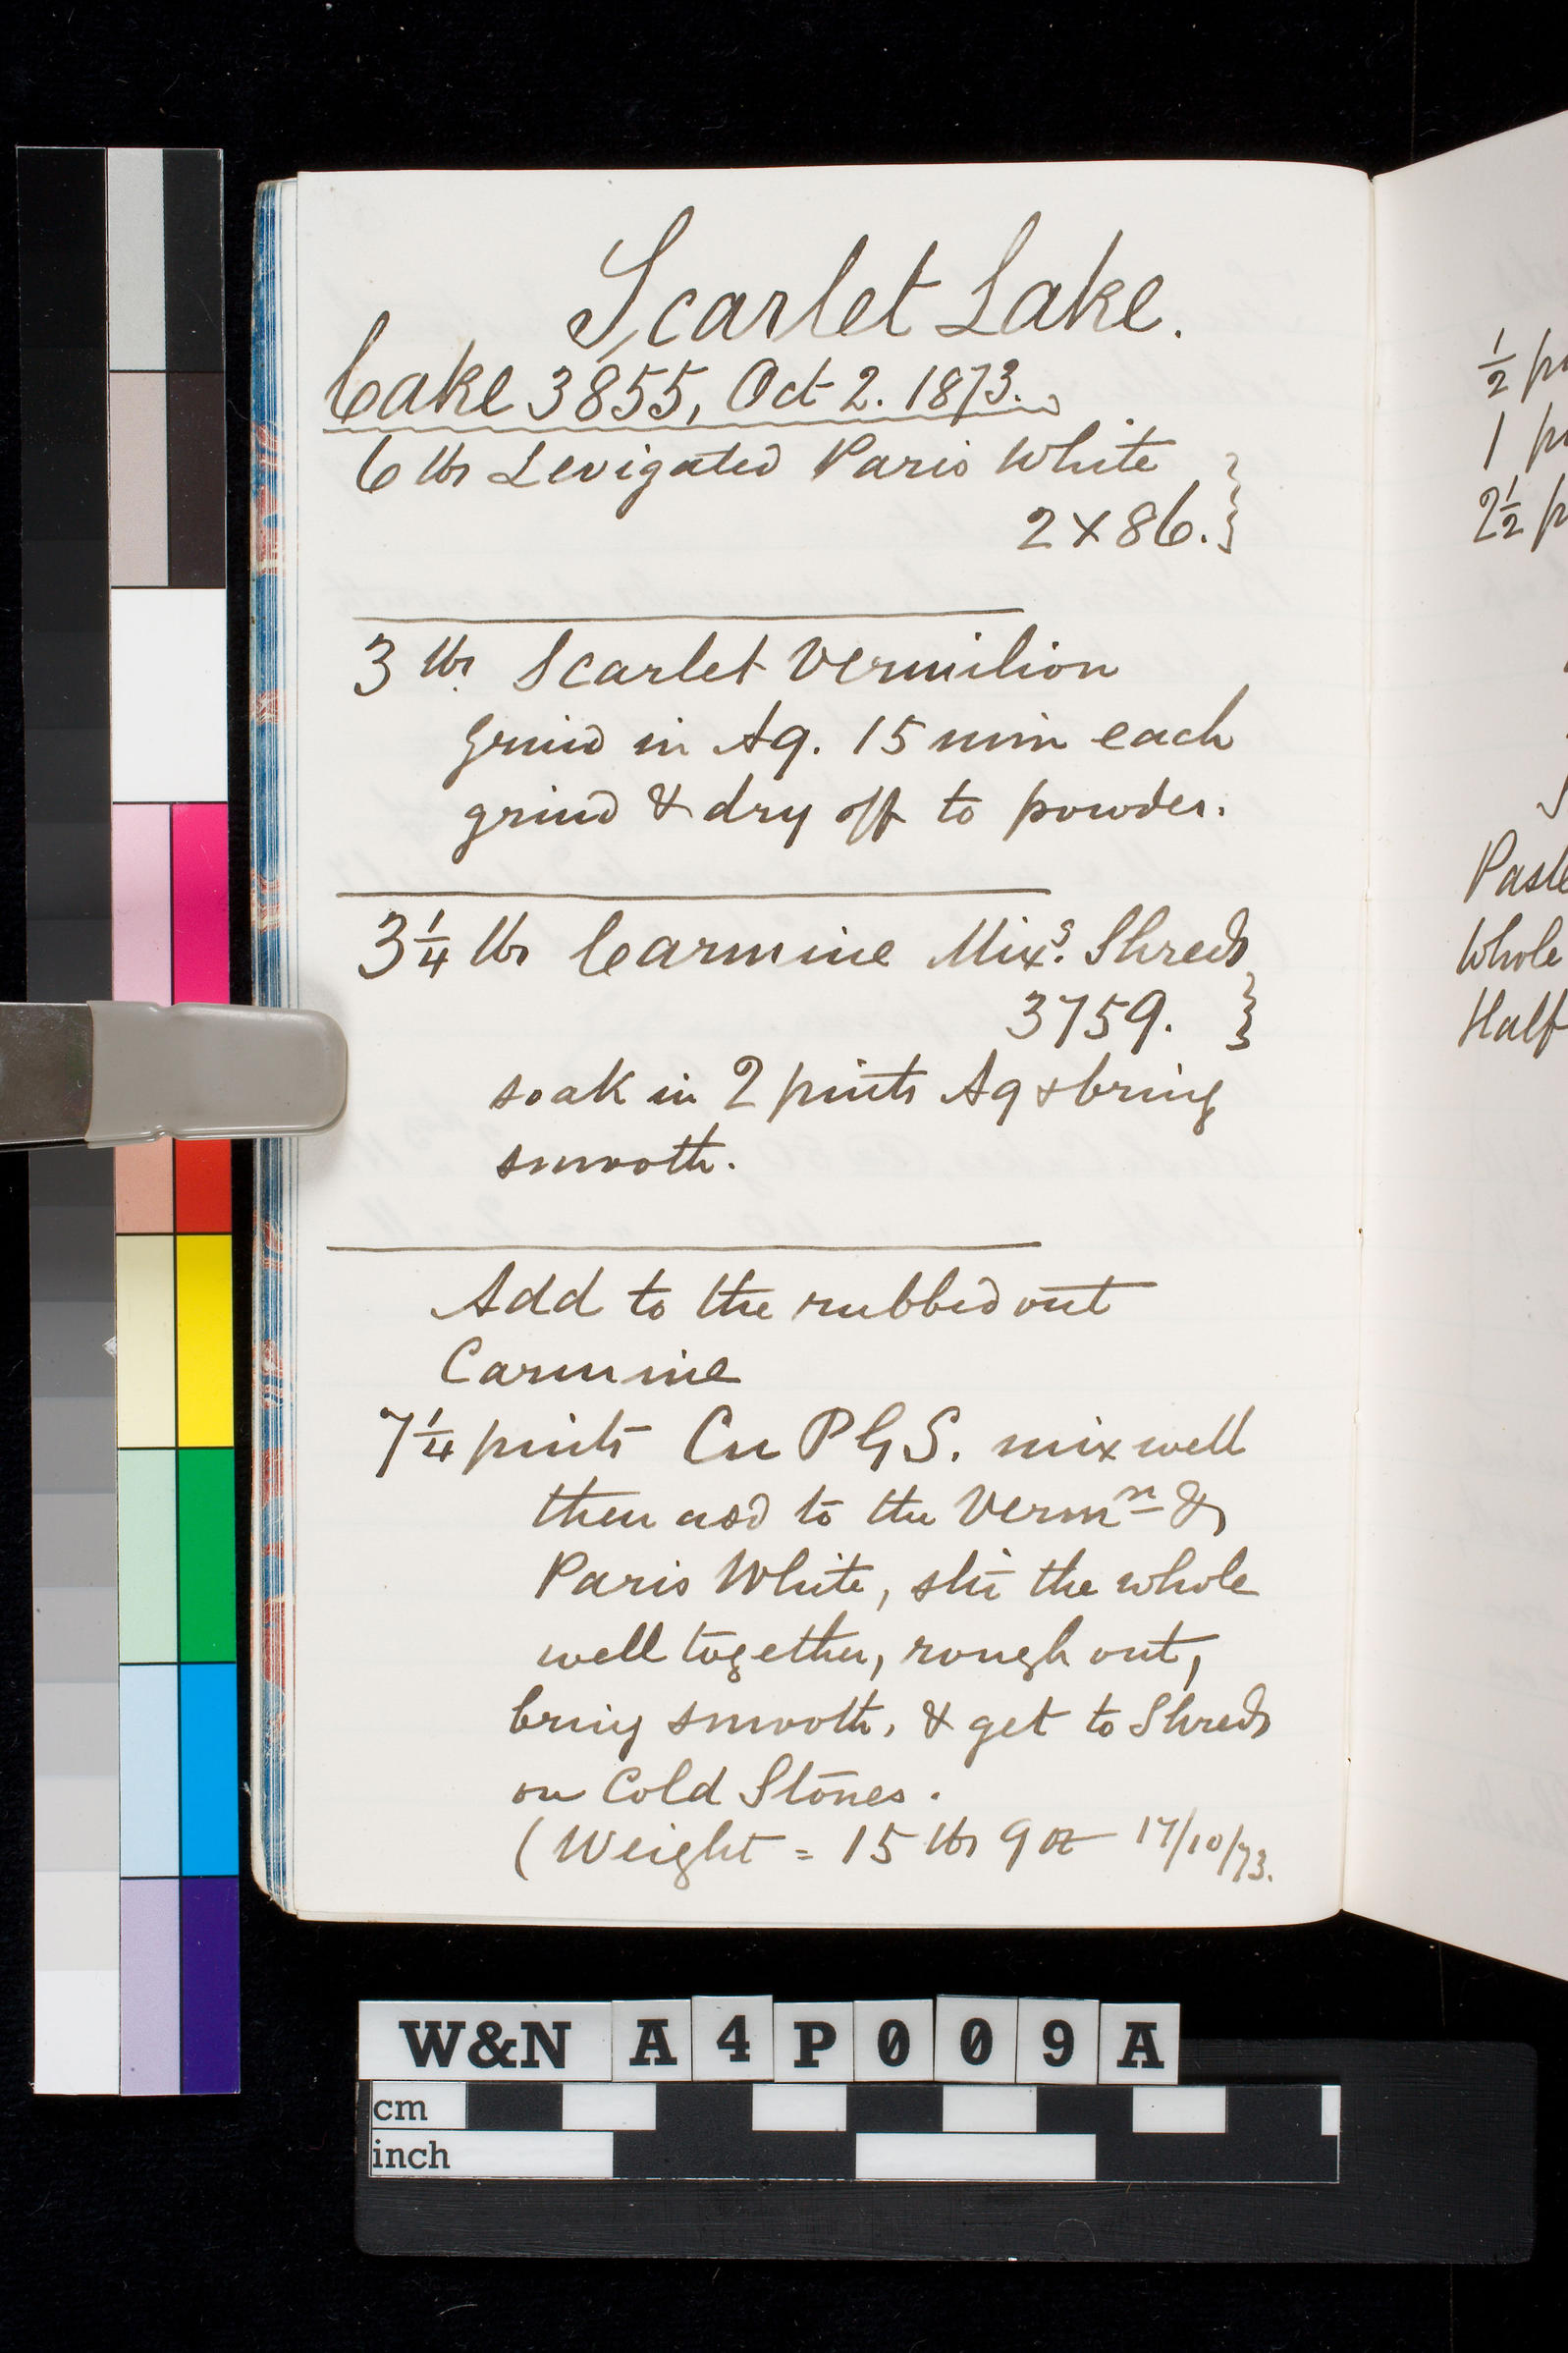 Scarlet Lake.
Cake 3855, Oct 2. 1873.
6 lbs Levigated Paris White
2x86.
3 lbs Scarlet Vermilion
Grind in Aq. 15 min each
grind & dry off to powder.
3¼ lbs Carmine Mixs. Shreds
3759.
soak in 2 pints Aq & bring
smooth.
Add to the rubbed out
Carmine
7¼ pints Cu P G S. mix well
then add to the Vermn &
Paris White, stir the whole
well together, rough out,
bring smooth, & get to Shreds
on Cold Stones.
(Weight = 15 lbs 9 oz 17/10/73.
½ p
1 p
2½ p
Paste
Whole
Half
W&N A4P009A
cm
inch